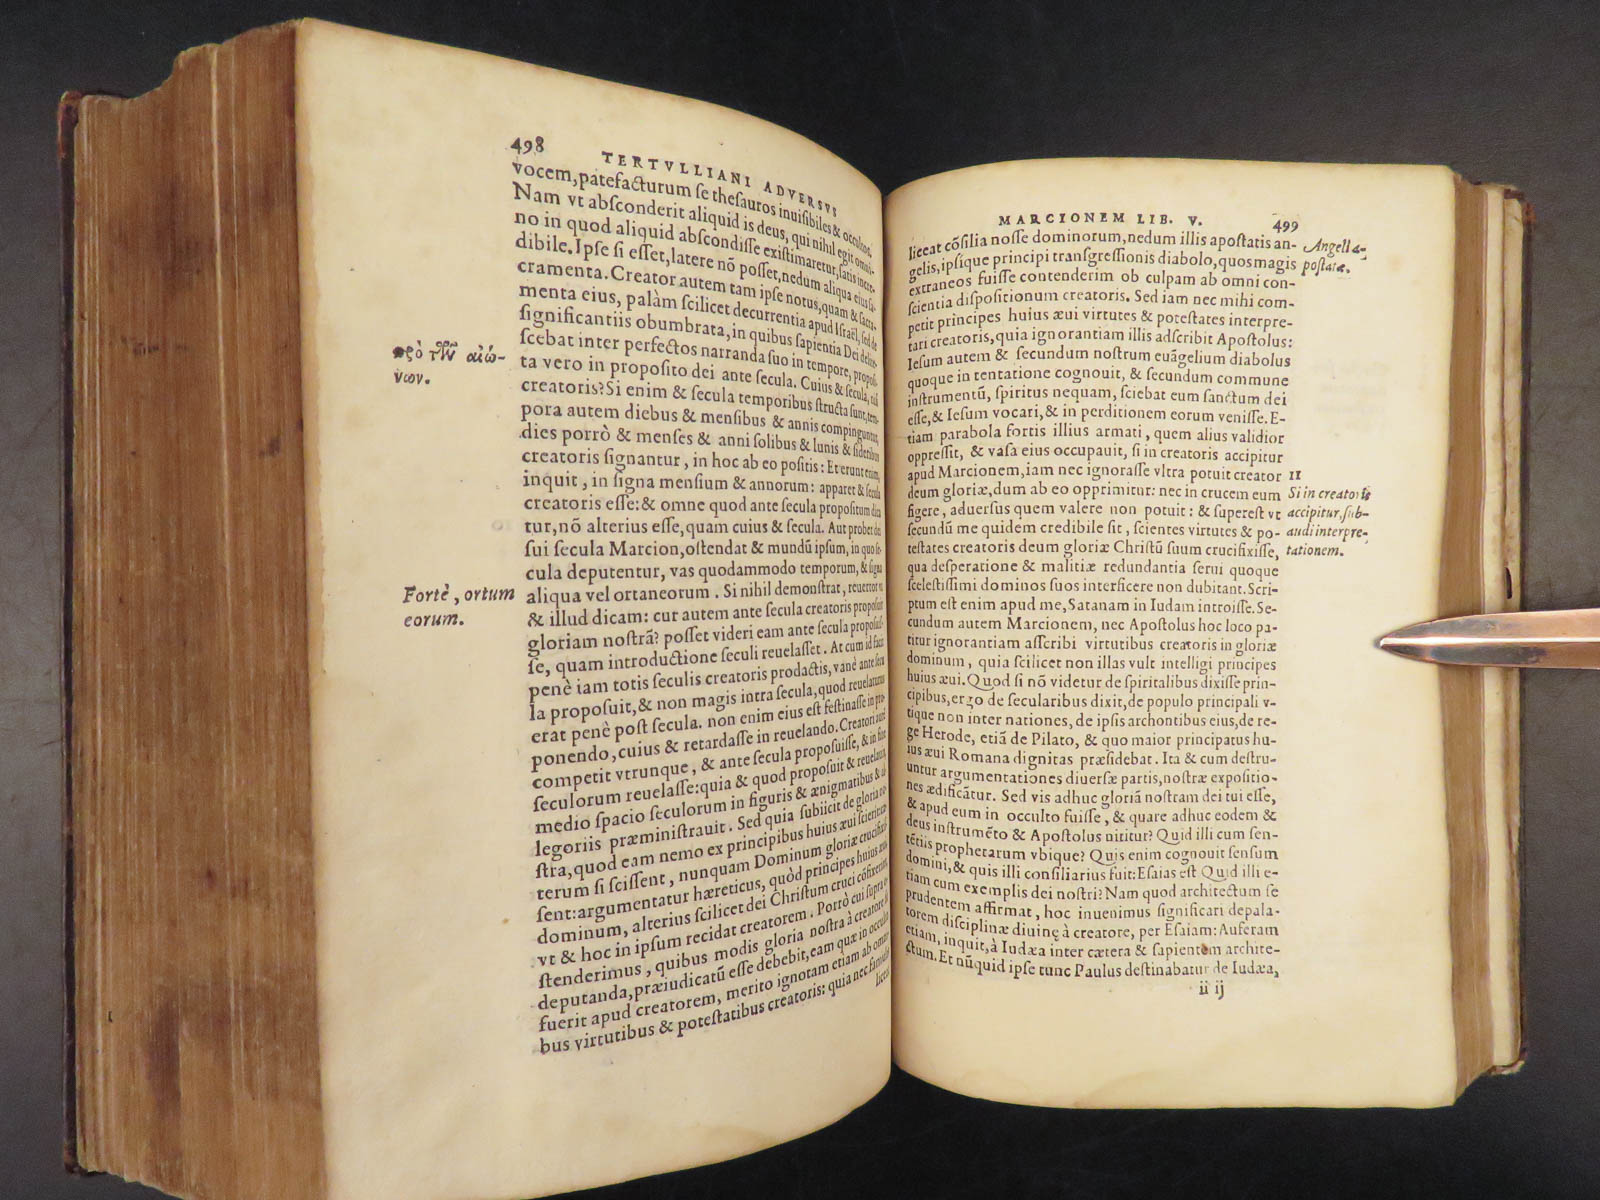 498
TERTVLLIANI ADVERSVS
vocem, patefacturum se thesauros inuisibiles & occultos.
Nam vt absconderit aliquid is deus, qui nihil egit omni-
no in quod aliquid abscondisse existimaretur, satis incre-
dibile. Ipse si esset, latere nō posset, nedum aliqua eius sa-
cramenta. Creator autem tam ipse notus, quam & sacra-
menta eius, palàm scilicet decurrentia apud Israël, sed de
significantiis obumbrata, in quibus sapientia Dei delite-
scebat inter perfectos narranda suo in tempore, proposi-
ta vero in proposito dei ante secula. Cuius & secula, nisi
creatoris? Si enim & secula temporibus structa sunt, tem-
pora autem diebus & mensibus & annis compinguntur,
dies porrò & menses & anni solibus & lunis & sideribus
creatoris signantur, in hoc ab eo positis: Et erunt enim,
inquit, in signa mensium & annorum: apparet & secula
creatoris esse: & omne quod ante secula propositum dica
tur, nō alterius esse, quam cuius & secula. Aut probet dei
sui secula Marcion, ostendat & mundū ipsum, in quo se-
cula deputentur, vas quodammodo temporum, & signa
aliqua vel ortaneorum. Si nihil demonstrat, reuertor vt
& illud dicam: cur autem ante secula creatoris proposuit
gloriam nostrā? posset videri eam ante secula proposuis-
se, quam introductione seculi reuelasset. At cum id facit
penè iam totis seculis creatoris prodactis, vanè ante secu
la proposuit, & non magis intra secula, quod reuelaturus
erat penè post secula. non enim eius est festinasse in pro-
ponendo, cuius & retardasse in reuelando. Creatori autem
competit vtrunque, & ante secula proposuisse, & in fine
seculorum reuelasse: quia & quod proposuit & reuelauit,
medio spacio seculorum in figuris & ænigmatibus & al-
legoriis præministrauit. Sed quia subiicit de gloria no-
stra, quod eam nemo ex principibus huius æui scierit: cæ-
terum si scissent, nunquam Dominum gloriæ crucifixis-
sent: argumentatur hæreticus, quòd principes huius æui
dominum, alterius scilicet dei Christum cruci cōfixerint,
vt & hoc in ipsum recidat creatorem. Porrò cui supra o-
stenderimus, quibus modis gloria nostra à creatore sit
deputanda, præiudicatū esse debebit, eam quæ in occulto
fuerit apud creatorem, merito ignotam etiam ab omni-
bus virtutibus & potestatibus creatoris: quia nec famulis
liceat
πρὸ τῶν αἰώ-
νων.
Fortè, ortum
eorum.
MARCIONEM LIB. V.
499
liceat cōsilia nosse dominorum, nedum illis apostatis an-
gelis, ipsique principi transgressionis diabolo, quos magis
extraneos fuisse contenderim ob culpam ab omni con-
scientia dispositionum creatoris. Sed iam nec mihi com-
petit principes huius æui virtutes & potestates interpre-
tari creatoris, quia ignorantiam illis adscribit Apostolus:
Iesum autem & secundum nostrum euāgelium diabolus
quoque in tentatione cognouit, & secundum commune
instrumentū, spiritus nequam, sciebat eum sanctum dei
esse, & Iesum vocari, & in perditionem eorum venisse. E-
tiam parabola fortis illius armati, quem alius validior
oppressit, & vasa eius occupauit, si in creatoris accipitur
apud Marcionem, iam nec ignorasse vltra potuit creator
deum gloriæ, dum ab eo opprimitur: nec in crucem eum
figere, aduersus quem valere non potuit: & superest vt
secundū me quidem credibile sit, scientes virtutes & po-
testates creatoris deum gloriæ Christū suum crucifixisse,
qua desperatione & malitiæ redundantia serui quoque
scelestissimi dominos suos interficere non dubitant. Scri-
ptum est enim apud me, Satanam in Iudam introisse. Se-
cundum autem Marcionem, nec Apostolus hoc loco pa-
titur ignorantiam asscribi virtutibus creatoris in gloriæ
dominum, quia scilicet non illas vult intelligi principes
huius æui. Quod si nō videtur de spiritalibus dixisse prin-
cipibus, ergo de secularibus dixit, de populo principali v-
tique non inter nationes, de ipsis archontibus eius, de re-
ge Herode, etiā de Pilato, & quo maior principatus hu-
ius æui Romana dignitas præsidebat. Ita & cum destru-
untur argumentationes diuersæ partis, nostræ expositio-
nes ædificātur. Sed vis adhuc gloriā nostram dei tui esse,
& apud eum in occulto fuisse, & quare adhuc eodem &
deus instrumēto & Apostolus nititur? Quid illi cum sen-
tētiis prophetarum vbique? Quis enim cognouit sensum
domini, & quis illi consiliarius fuit: Esaias est Quid illi e-
tiam cum exemplis dei nostri? Nam quod architectum se
prudentem affirmat, hoc inuenimus significari depala-
torem disciplinæ diuinę à creatore, per Esaiam: Auferam
etiam, inquit, à Iudæa inter cætera & sapientem archite-
ctum. Et nūquid ipse tunc Paulus destinabatur de Iudæa,
ii ij
Angeli a-
postatæ.
11
Si in creatoris
accipitur, sub-
audi interpre-
tationem.